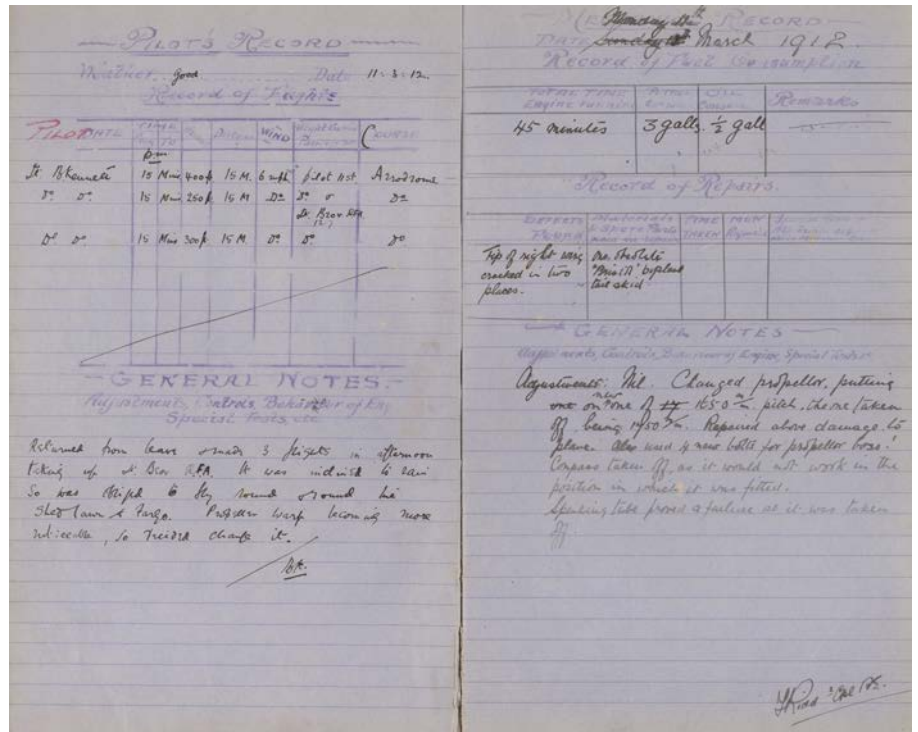 PILOT'S RECORD
Weather good Date 11-3-12.
Record of Flights
PILOT TIME WIND COURSE
pm
Lt. 15 Mins 400ft 15 M. 6 mph pilot Aerodrome
Do Do 15 Mins 250ft 15 M Do Do Do
Lt.
Do Do 15 Mins 300ft 15 M. Do Do Do
GENERAL NOTES.
Adjustments, Controls, Behaviour of Eng
Special Tests, etc
Returned from leave & made 3 flights in afternoon
taking up Lt. R.F.A. It was inclined to rain
So was obliged to fly round & round the
Shed Lawn & Propeller warp becoming more
noticeable, so decided change it.
BK.
RECORD
DATE Monday 11th March 1912.
Record of Fuel Consumption
TOTAL TIME
ENGINE RUNNING PETROL OIL Remarks
45 minutes 3 galls. 1/2 gall
Record of Repairs.
DEFECTS Materials TIME MEN
FOUND & Spare Parts TAKEN
Tip of right wing one obsolete
cracked in two "Bristol" biplane
places. tail skid
GENERAL NOTES
Adjustments, Controls, Behaviour of Engine, Special Tests
Adjustments: Nil. Changed propellor, putting
new
on one of 1650 m/m pitch, the one taken
off being 1750 m/m. Repaired above damage to
plane. Also used 4 new bolts for propellor boss!
Compass taken off, as it would not work in the
position in which it was fitted.
Speaking tube proved a failure as it was taken
off.